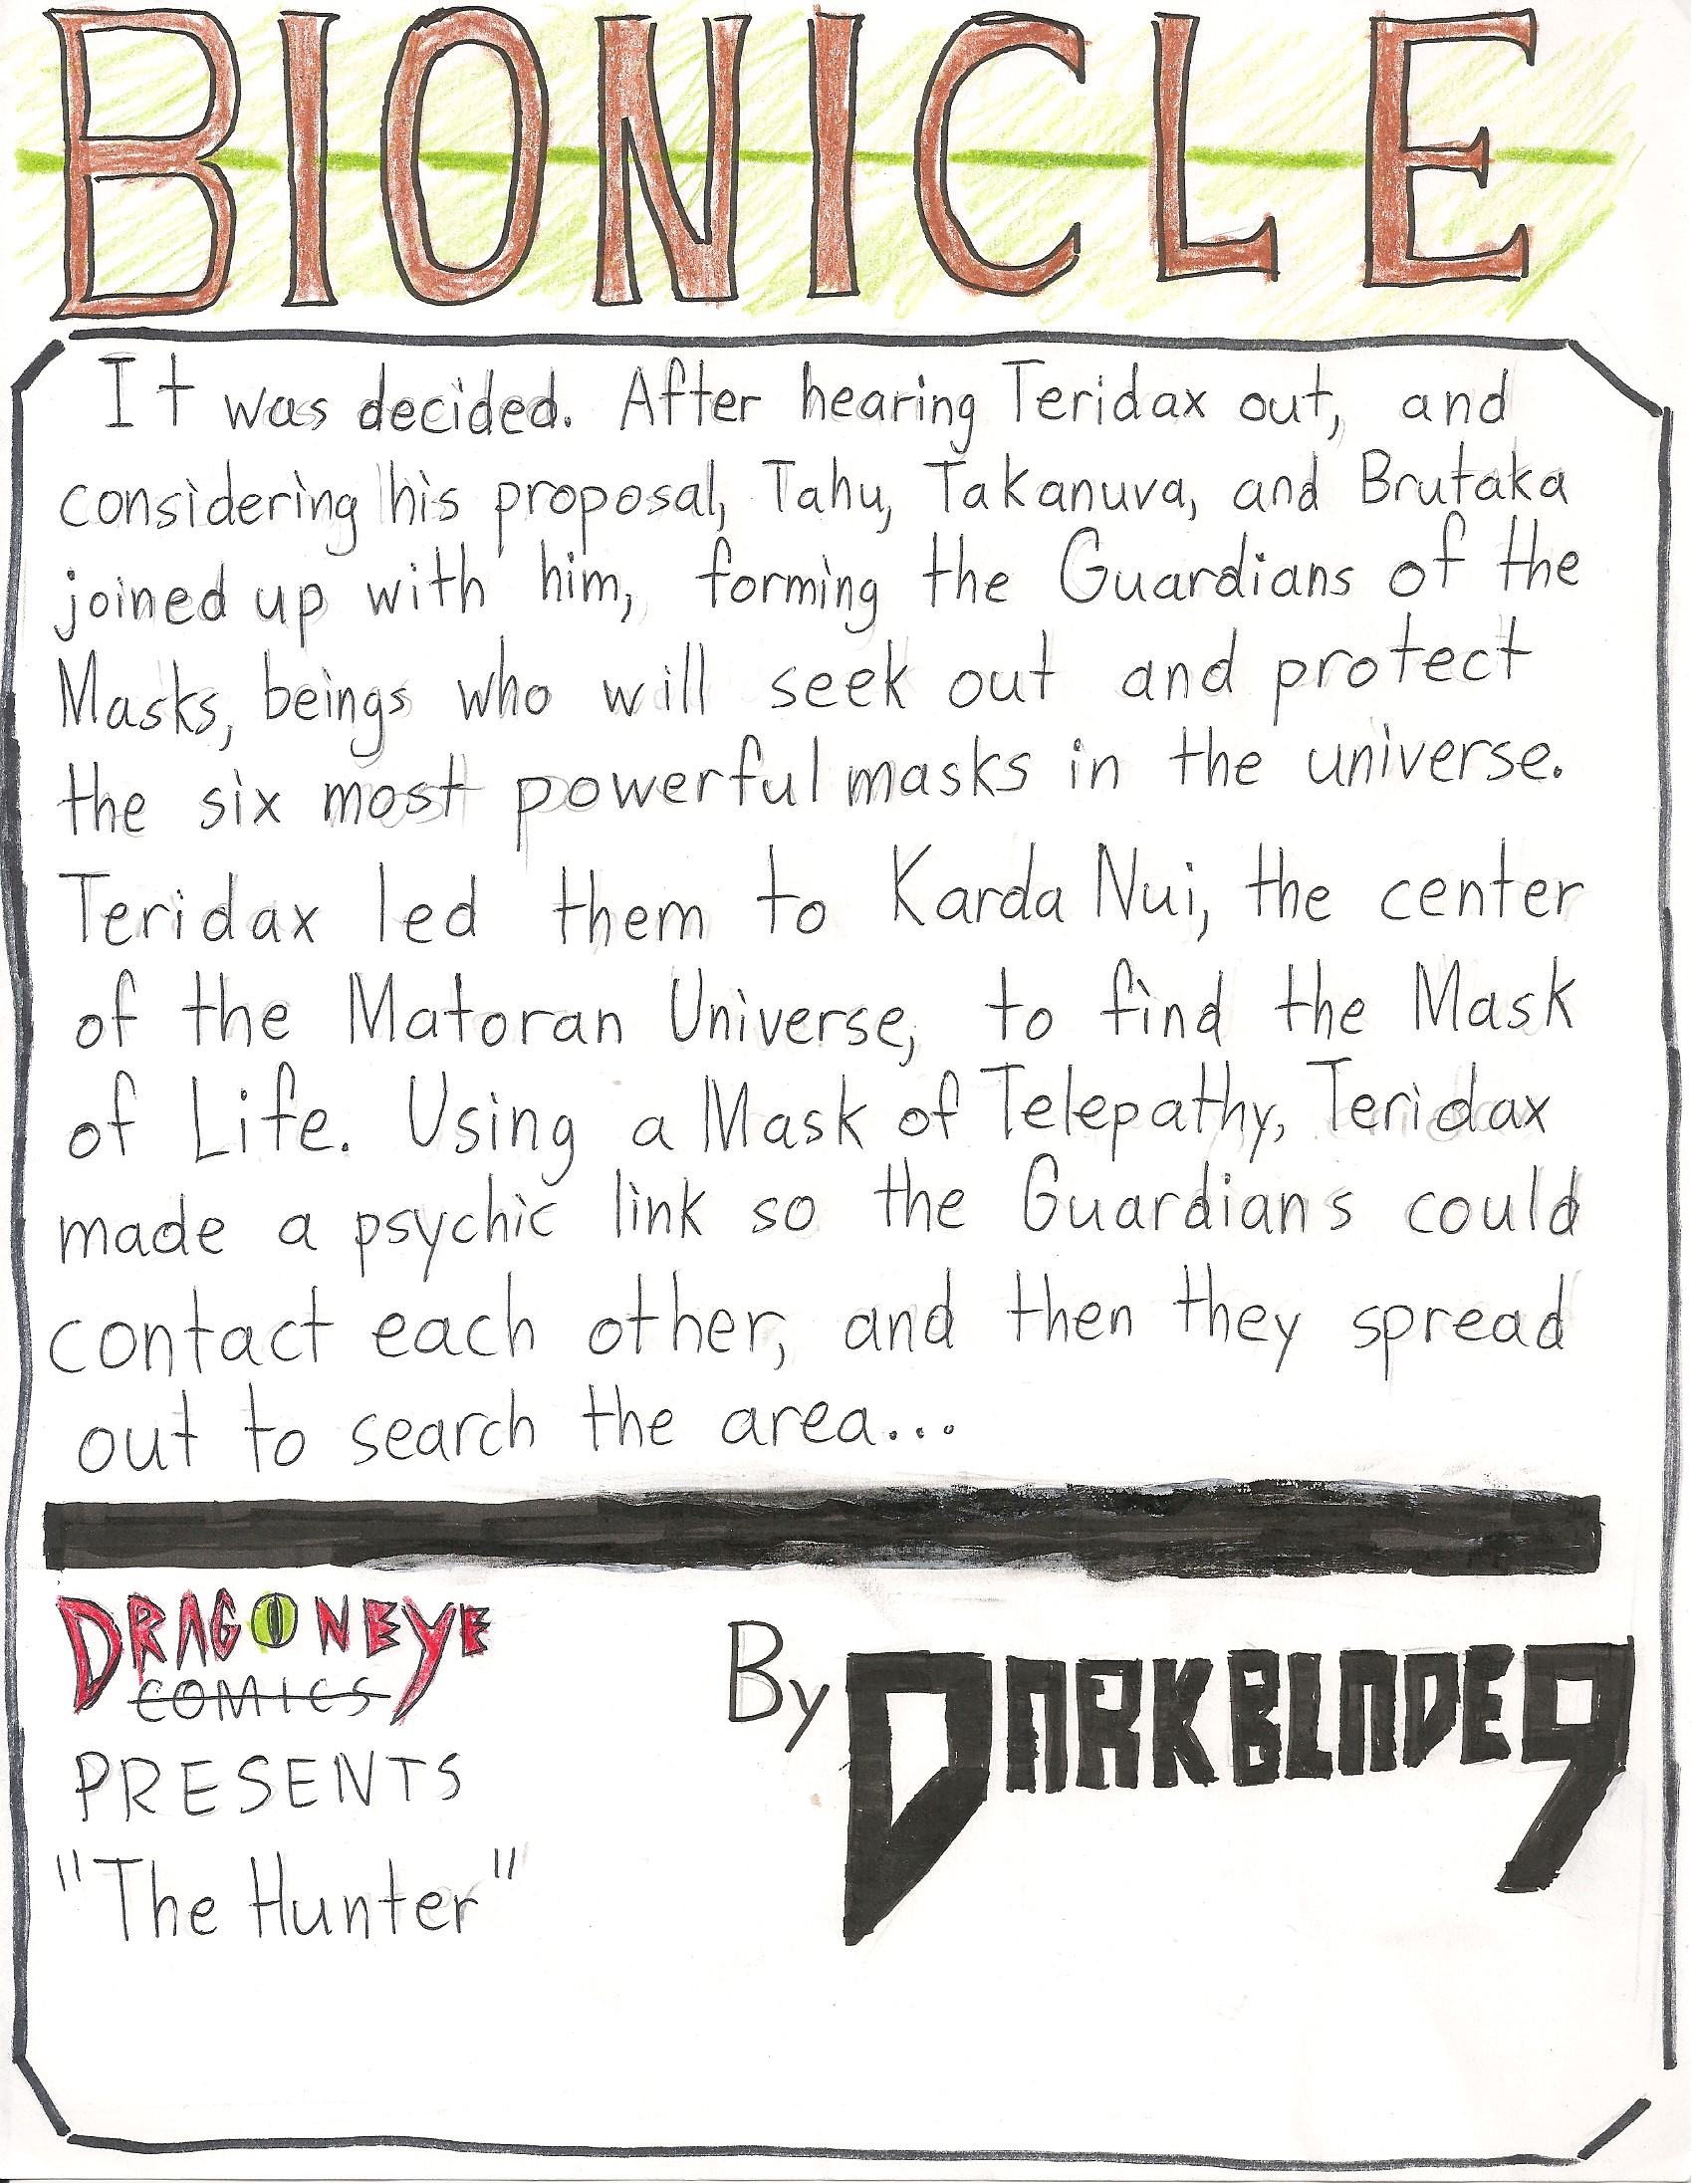 BIONICLE
It was decided. After hearing Teridax out, and
considering his proposal, Tahu, Takanuva, and Brutaka
joined up with him, forming the Guardians of the
Masks, beings who will seek out and protect
the six most powerful masks in the universe.
Teridax led them to Karda Nui, the center
of the Matoran Universe, to find the Mask
of Life. Using a Mask of Telepathy, Teridax
made a psychic link so the Guardians could
contact each other, and then they spread
out to search the area...
DRAGONEYE
COMICS
PRESENTS
"The Hunter"
By DARKBLADE9